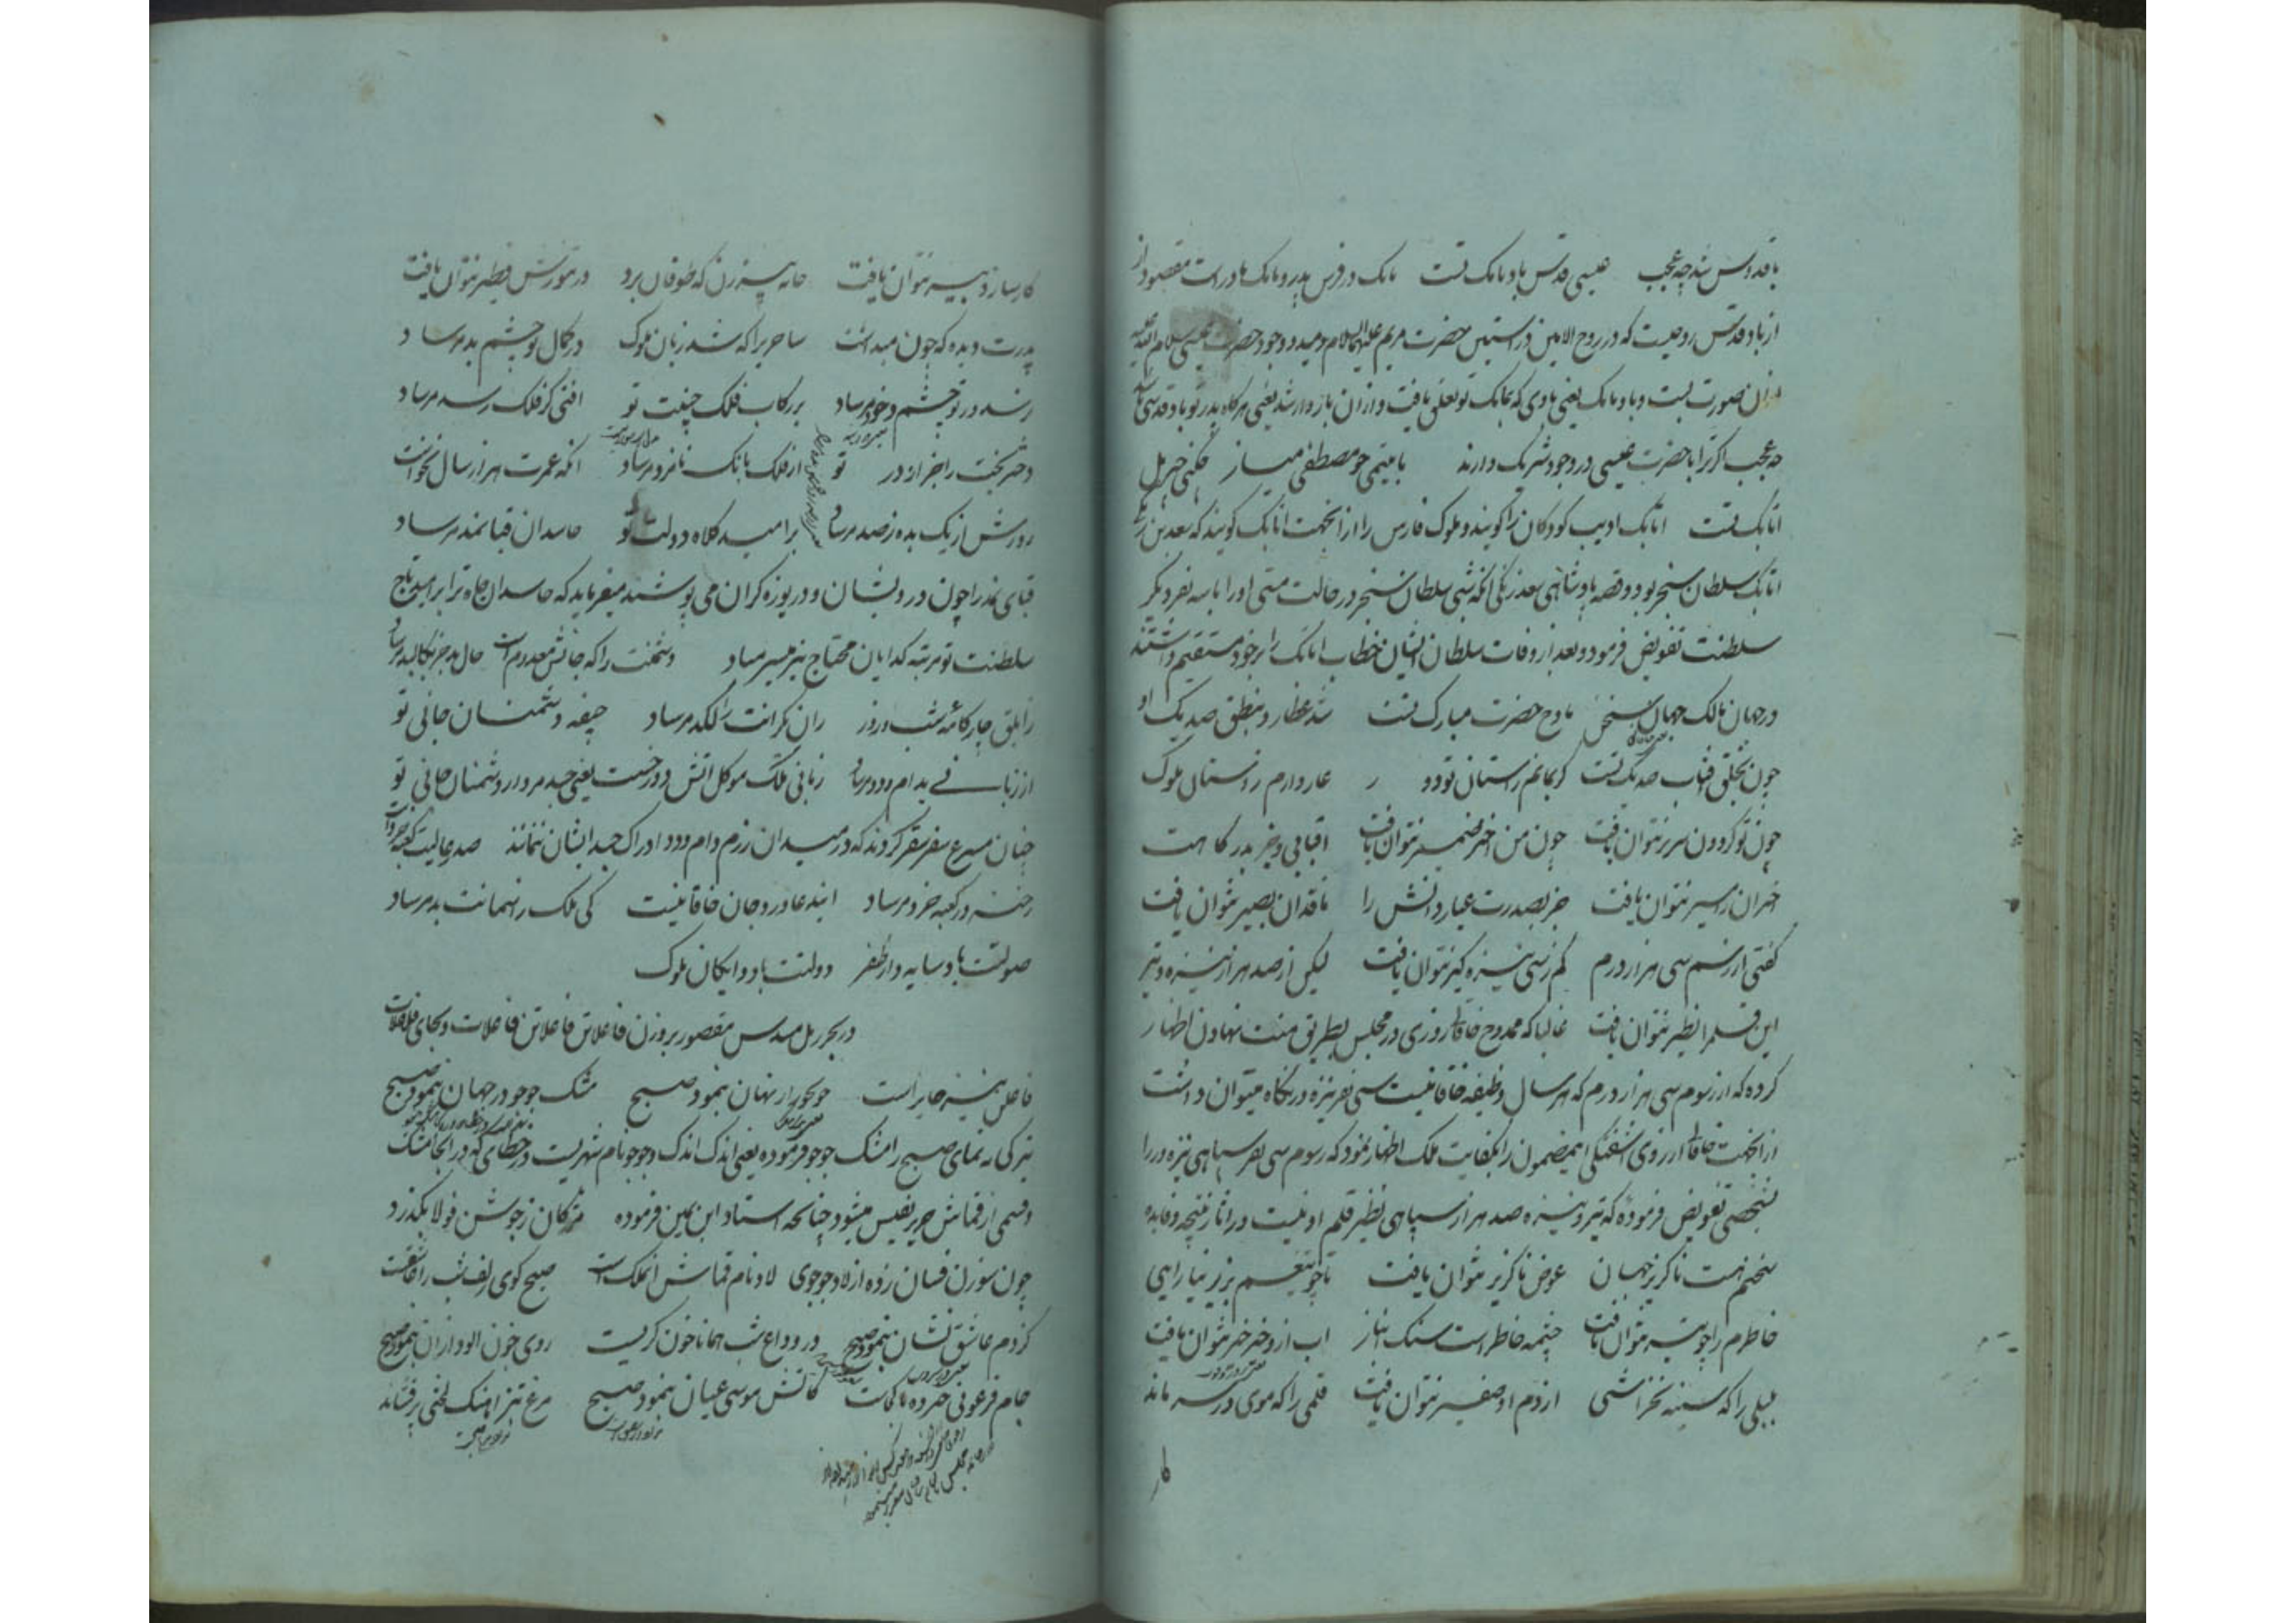 با قدوس شد چه عجب عیسی قدس باد و بابک تست بابک در فرس پدر و مامک مادرست مقصود از
از باد قدس روحیست که در روح الامین در آستین حضرت مریم علیها السلام دمید و وجود حضرت عیسی علیه السلام
از ان صورت بست و باد بابک یعنی بادی که ببابک تو تعلق یافت و از ان باز دار شد یعنی هرگاه پدر تو باد قدسی
چه عجب اگر ترا با حضرت عیسی در وجود شریک دارند با یتیمی چو مصطفی میساز چکنی جبریل
اتابک تست اتابک ادیب کودکان را گویند و ملوک فارس را از انجهت اتابک گویند که سعد بن زنگی
اتابک سلطان سنجر بود و قصه پادشاهی سعد زنگی انکه شبی سلطان سنجر در حالت مستی او را با سه نفر دیگر
سلطنت تفویض فرمود و بعد از وفات سلطان ایشان خطاب اتابک را بر خود مستقیم داشتند
در جهان مالک جهان سخن مادح حضرت مبارک تست شد عطارد بنطق صد یک او
چون بخلق آفتاب صد یک تست گر بمانم راستان تو دور عار دارم ز داستان ملوک
چون تو گردون سریر نتوان یافت چون من اختر ضمیر نتوان یافت آفتابی و جز بدرگاهت
اختران را مسیر نتوان یافت جز بصدرت عیار دانش را ناقدان بصیر نتوان یافت
گفتی از رسم سی هزار درم کم ز سی نیزه گیر نتوان یافت لیکن از صد هزار نیزه و تیر
این قلم را نظیر نتوان یافت غالبا که ممدوح خاقانی روزی در مجلس بطریق منت نهادن اظهار
کرده که از رسوم سی هزار درم که هر سال وظیفه خاقانیست سی نفر نیزه در نگاه میتوان داشت
از انجهت خاقانی از روی آشفتگی این مضمون را بکفایت ملک اظهار نمود که رسوم سی نفر سپاهی نیزه ور را
بشخصی تفویض فرموده که تیر و نیزه صد هزار سپاهی نظیر قلم او نیست در آثار نتیجه و فایده
سخنم هست ناگزیر جهان عوض ناگزیر نتوان یافت تا چو تیغم بزر نیارایی
خاطرم را چو تیر نتوان یافت چشمه خاطر است سنگ انباز آب ازو خیر خیر نتوان یافت
بلبلی را که سینه بخراشی از دم او صفیر نتوان یافت قلمی را که موی در سر ماند
کار
کار ساز دبیر نتوان یافت خانه پیرزن که طوفان برد در تنورش فطیر نتوان یافت
پدرت دیده که چون میداشت ساحریرا که شد زبان ملوک در کمال تو چشم بد مرساد
رسد در تو چشم و خود مرساد بر رکاب فلک جنیبت تو آفتی کز فلک رسد مرساد
دختر بخت را جز از در تو از فلک بانگ نامزد مرساد آنکه عمرت هزار سال نخواست
روزش از یک بده ز صد مرساد بر امید کلاه دولت تو حاسدان قبا نمد مرساد
قبای نمد را چون درویشان و دریوزه گران می پوشند میفرماید که حاسدان جاه ترا بر امید تاج
سلطنت تو مرتبه گدایان محتاج نیز میسر مباد دشمنت را که جانش معدوم است حال بد جز بکالبد مرساد
ز ابلق چارگامه شب و روز ران گرانت را لگد مرساد جیفه دشمنان جانی تو
از زبانی بدام و دد مرساد زبانی ملک موکل آتش دوزخست یعنی جسد مردار دشمنان جانی تو
چنان مسرع سفر سقر گردند که در میدان رزم دام و دد ادراک جسد ایشان ننمانند صدر عالیت کعبه خرد است
رخنه در کعبه خرد مرساد این دعا ورد جان خاقانیست کی ملک زاسمانت بد مرساد
صولتت باد سایه دار ظفر دولتت باد دایگان ملوک
در بحر رمل مسدس مقصور بر وزن فاعلاتن فاعلاتن فاعلات و بجای فاعلات
فاعلن نیز جایز است جو بجو راز نهان بنمود صبح مشک جو جو در جهان بنمود صبح
تیرگی نمای صبح را مشک جو جو فرموده یعنی اندک اندک و جو جو نام شهریست در خطای که در انجا مشک
و قسمی از قماش حریر نفیس میشود چنانچه استاد ابن یمین فرموده مژگان ز جوشن فولاد بگذرد
چون سوزن فسان زده از لاد جوجوی لاد نام قماش آنملک است صبح گوی زلف شب را عاشقست
کز دم عاشق نشان بنمود صبح در وداع شب همانا خون گریست روی خون آلود از ان بنمود صبح
جام فرعونی خبر ده تا کجاست کاتش موسی عیان بنمود صبح مرغ تیز آهنگ لختی پر فشاند